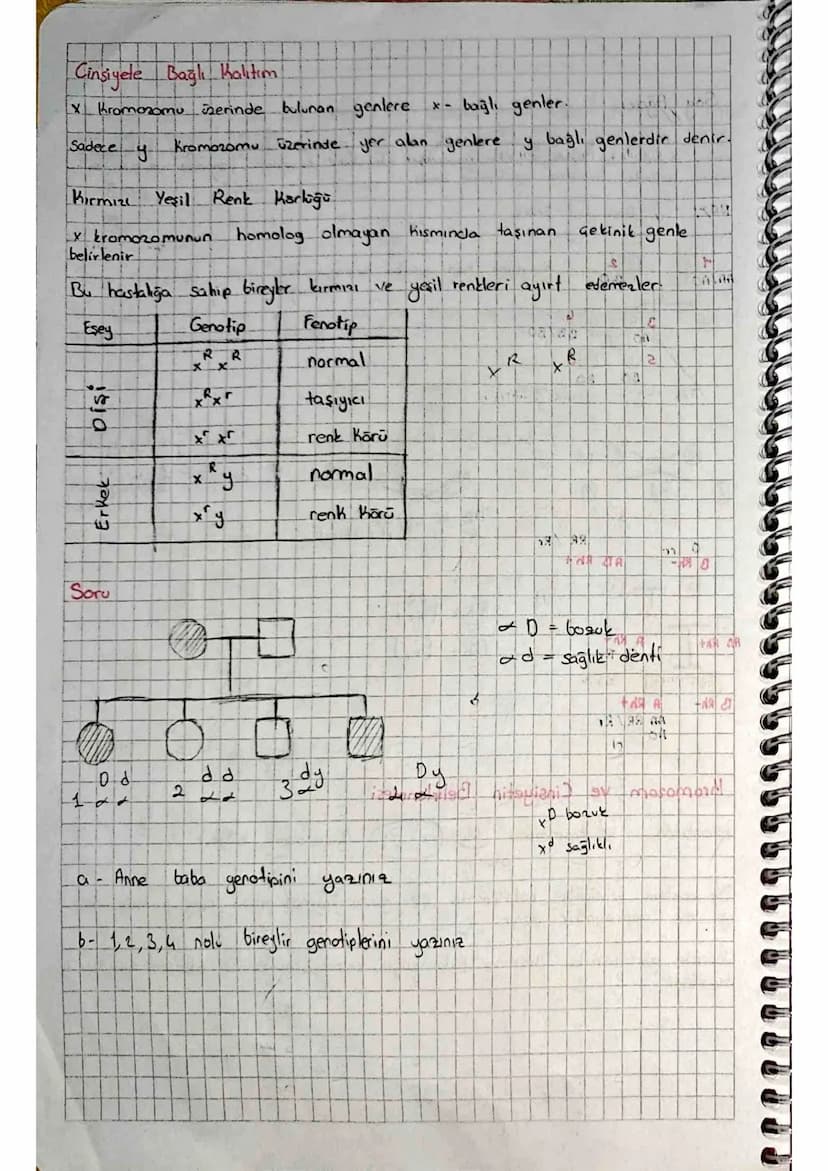 Cinsiyete Bağlı Kalıtım
x Kromozomu üzerinde bulunan genlere x - bağlı genler.
Sadece y Kromozomu üzerinde yer alan genlere y bağlı genlerdir denir.
Kırmızı Yeşil Renk Körlüğü
x kromozomunun homolog olmayan kısmında taşınan çekinik genle
belirlenir
Bu hastalığa sahip bireyler kırmızı ve yeşil renkleri ayırt edemezler.
Eşey Genotip Fenotip
Dişi
x^R x^R normal
x^R x^r taşıyıcı
x^r x^r renk Körü
Erkek
x^R y normal
x^r y renk Körü
x^R x^R
Soru
x D = bozuk
x d = sağlık denti
1 x^D x^d 2 x^d x^d 3 x^d y 4 x^D y
x^D bozuk
x^d sağlıklı
a - Anne baba genotipini yazınız
b- 1,2,3,4 nolu bireylir genotiplerini yazınız